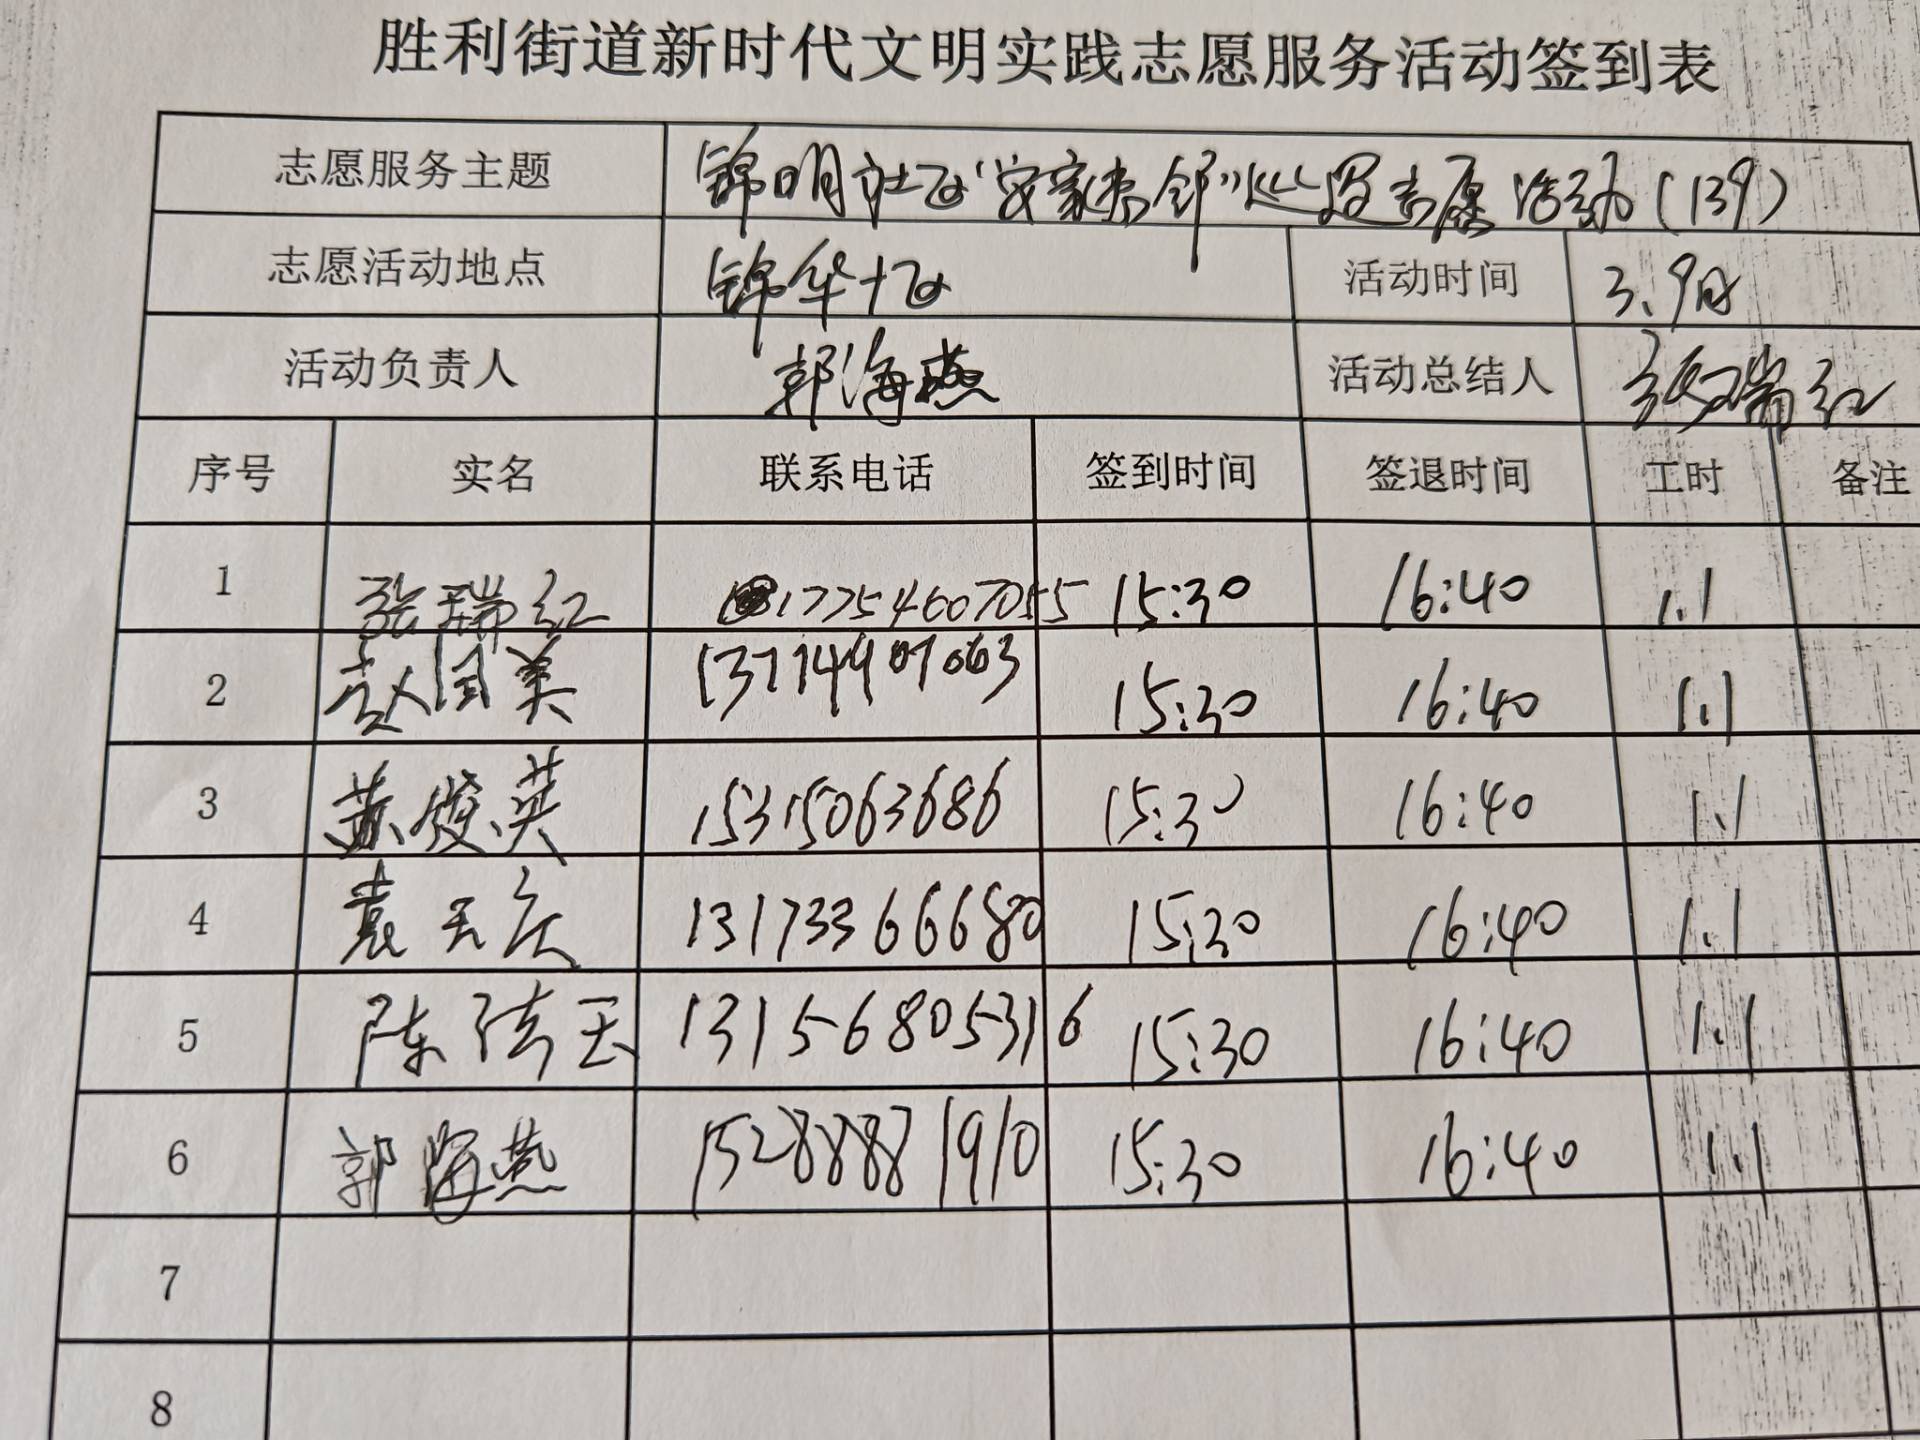 胜利街道新时代文明实践志愿服务活动签到表
志愿服务主题 锦明社区"安家杰邻"巡逻志愿活动(139)
志愿活动地点 锦华十区 活动时间 3.9日
活动负责人 郭海燕 活动总结人 张瑞红
序号 实名 联系电话 签到时间 签退时间 工时 备注
1 张瑞红 17754607055 15:30 16:40 1.1
2 赵国美 13714907063 15:30 16:40 1.1
3 苏俊英 15315063686 15:30 16:40 1.1
4 袁玉庆 13173366680 15:30 16:40 1.1
5 陈玉 13156805316 15:30 16:40 1.1
6 郭海燕 15288871910 15:30 16:40 1.1
7
8